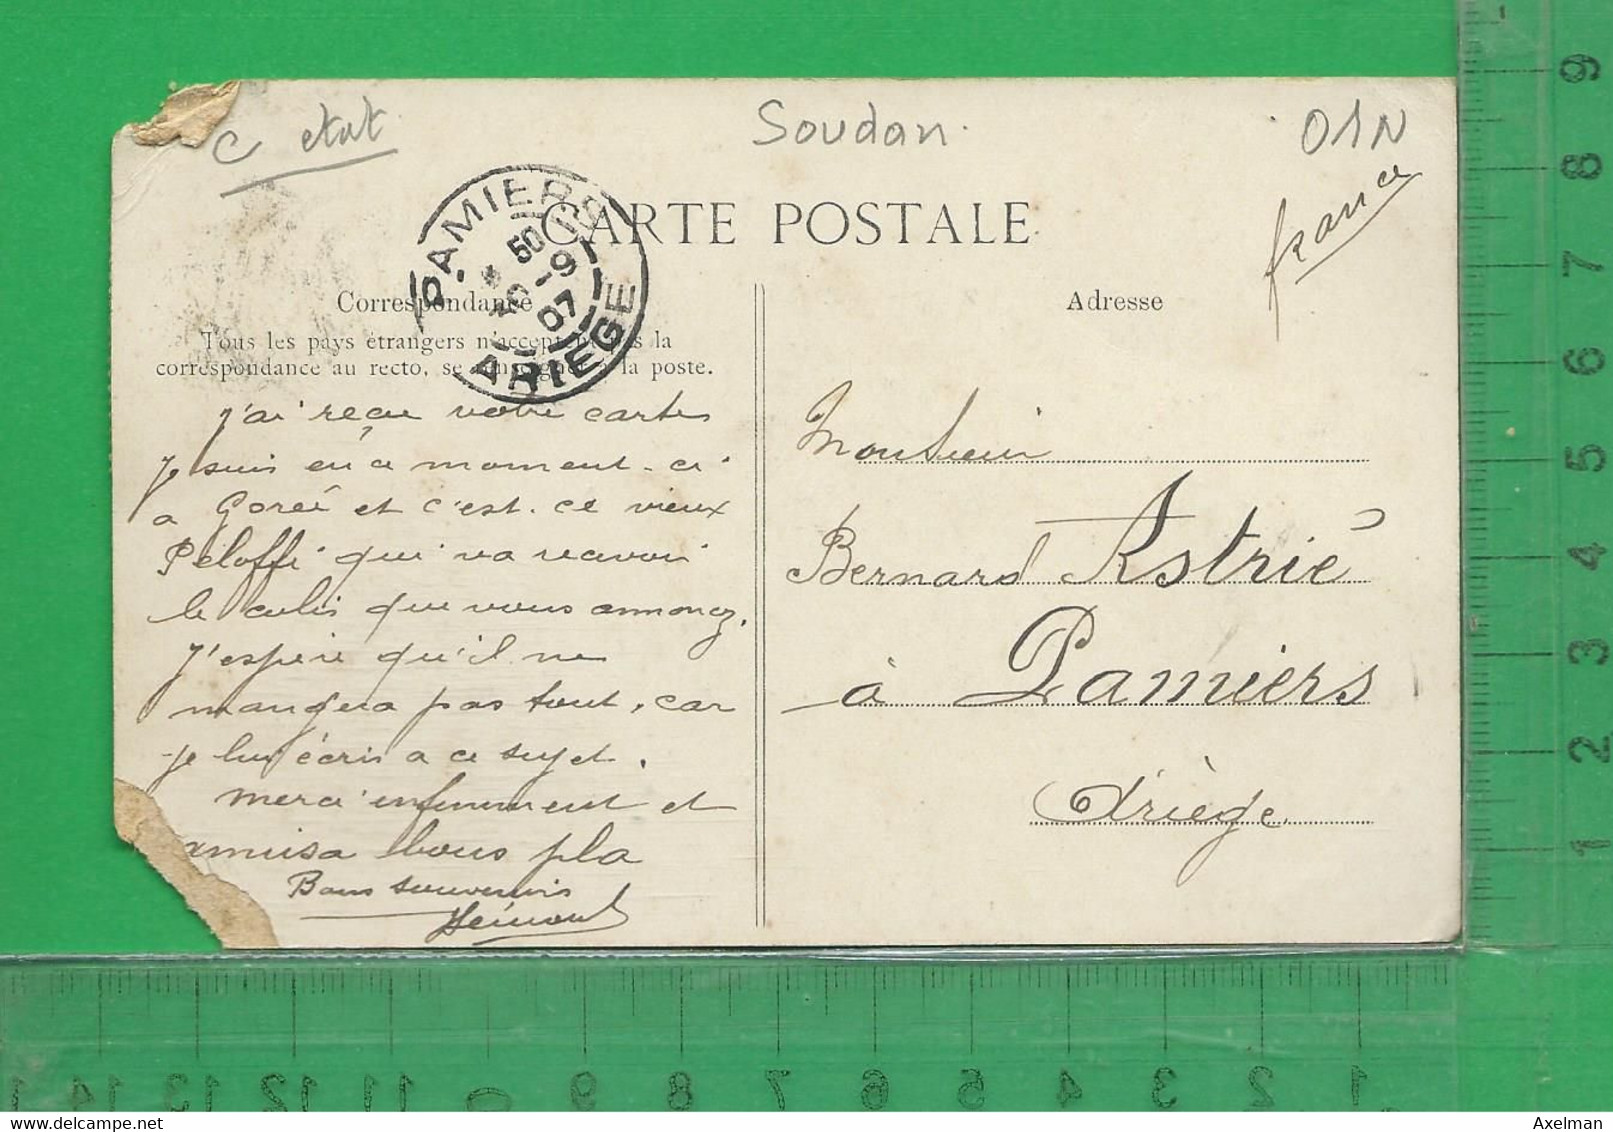 C etat
Soudan.
01N
france
PAMIERS
50
16 -9
07
ARIEGE
CARTE POSTALE
Correspondance
Adresse
Tous les pays étrangers n'acceptent pas la
correspondance au recto, se renseigner à la poste.
j'ai reçu votre cartes
je suis en ce moment-ci
a Goreé et c'est ce vieux
Peloffi qui va recevoir
le colis que vous annoncez.
J'espère qu'il ne
mangera pas tout, car
je lui écris a ce sujet.
merci infiniment et
amusa bous pla
Bons souvenirs
Monsieur
Bernard Astrié
à Pamiers
Ariège
9
8
7
6
5
4
3
2
1
14 13 12 11 9 8 7 6 5 4 3 2 1
www.delcampe.net
Axelman